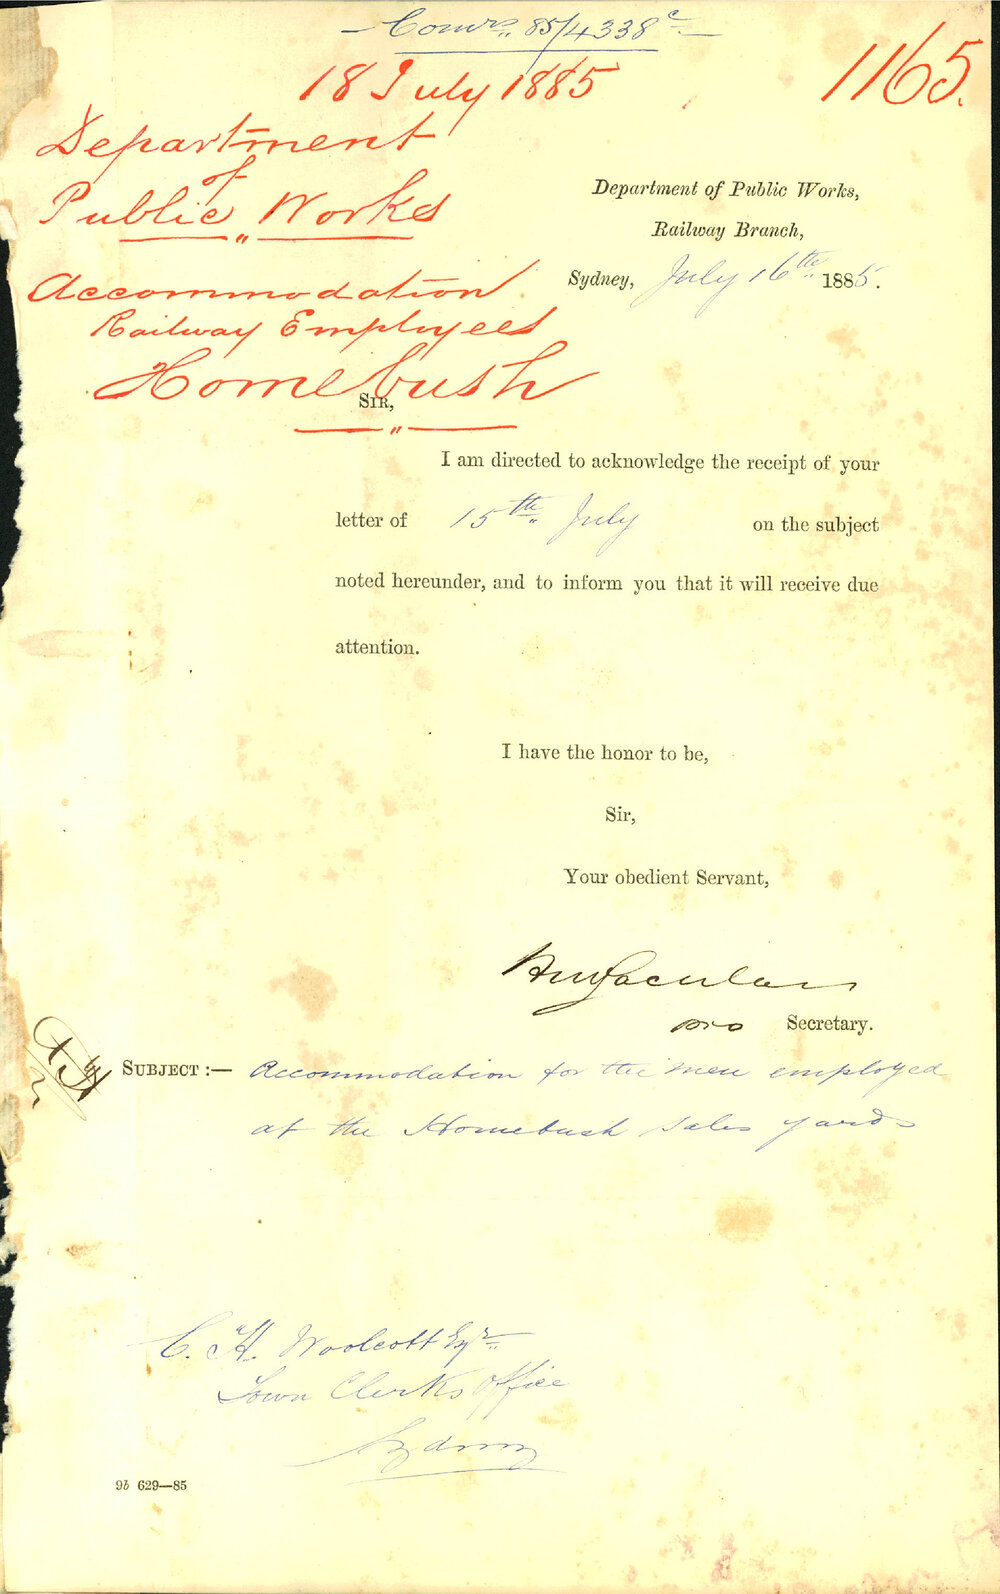 Comrs. 85/4338 c
18 July 1885
1165.
Department
of
Public Works
Accommodation
Railway Employees
Homebush
Department of Public Works,
Railway Branch,
Sydney, July 16th 1885.
SIR,
I am directed to acknowledge the receipt of your
letter of 15th July on the subject
noted hereunder, and to inform you that it will receive due
attention.
I have the honor to be,
Sir,
Your obedient Servant,
pro Secretary.
SUBJECT :— Accommodation for the men employed
at the Homebush Sales yards
C. H. Woolcott Esqr.
Town Clerks Office
Sydney
9b 629—85